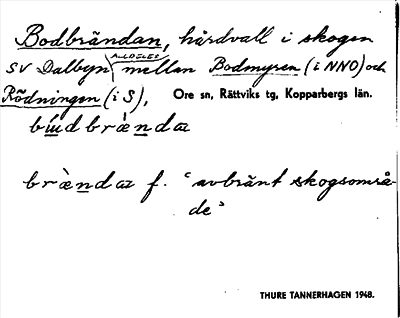 Bodbrändan, hårdvall i skogen
SV Dalbyn ALLDELES mellan Bodmyren (i NNO) och
Rödningen (i S), Ore sn, Rättviks tg, Kopparbergs län.
brænda f. ‘avbränt skogsområ-
de’
THURE TANNERHAGEN 1948.